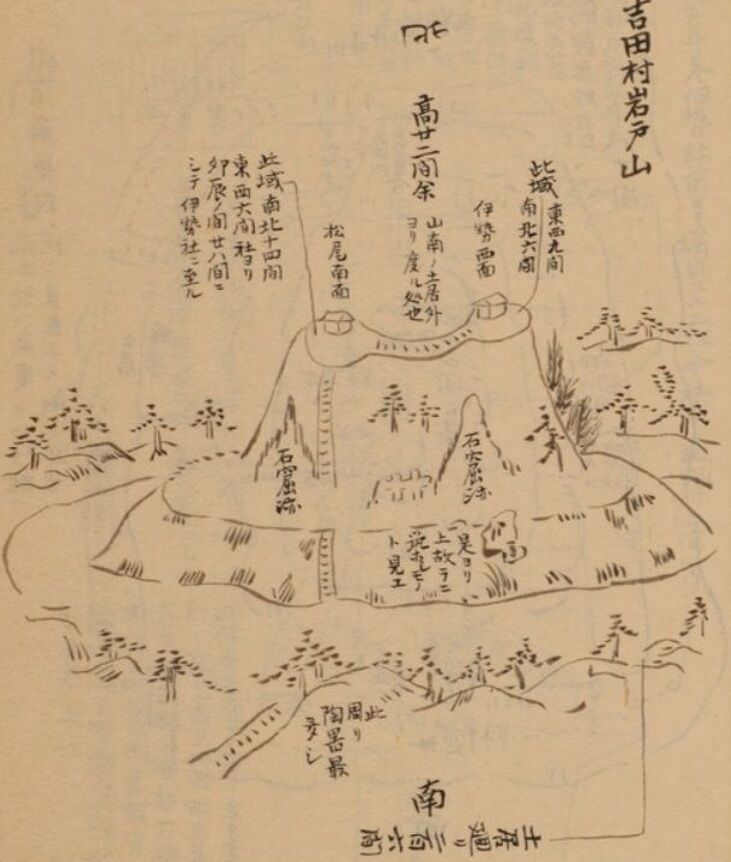 吉田村岩戸山
北
高廿二間余
山南ノ土居外
ヨリ度ル処也
此域東西九間
南北六間
伊勢西面
松尾南面
此域南北十四間
東西六間社ヨリ
卯辰ノ間廿八間ニ
シテ伊勢社ニ至ル
石窟跡
石窟跡
是ヨリ
上故ラニ
築
ト見エ
此
周り
陶器最
多シ
南
土居廻リ二百六間